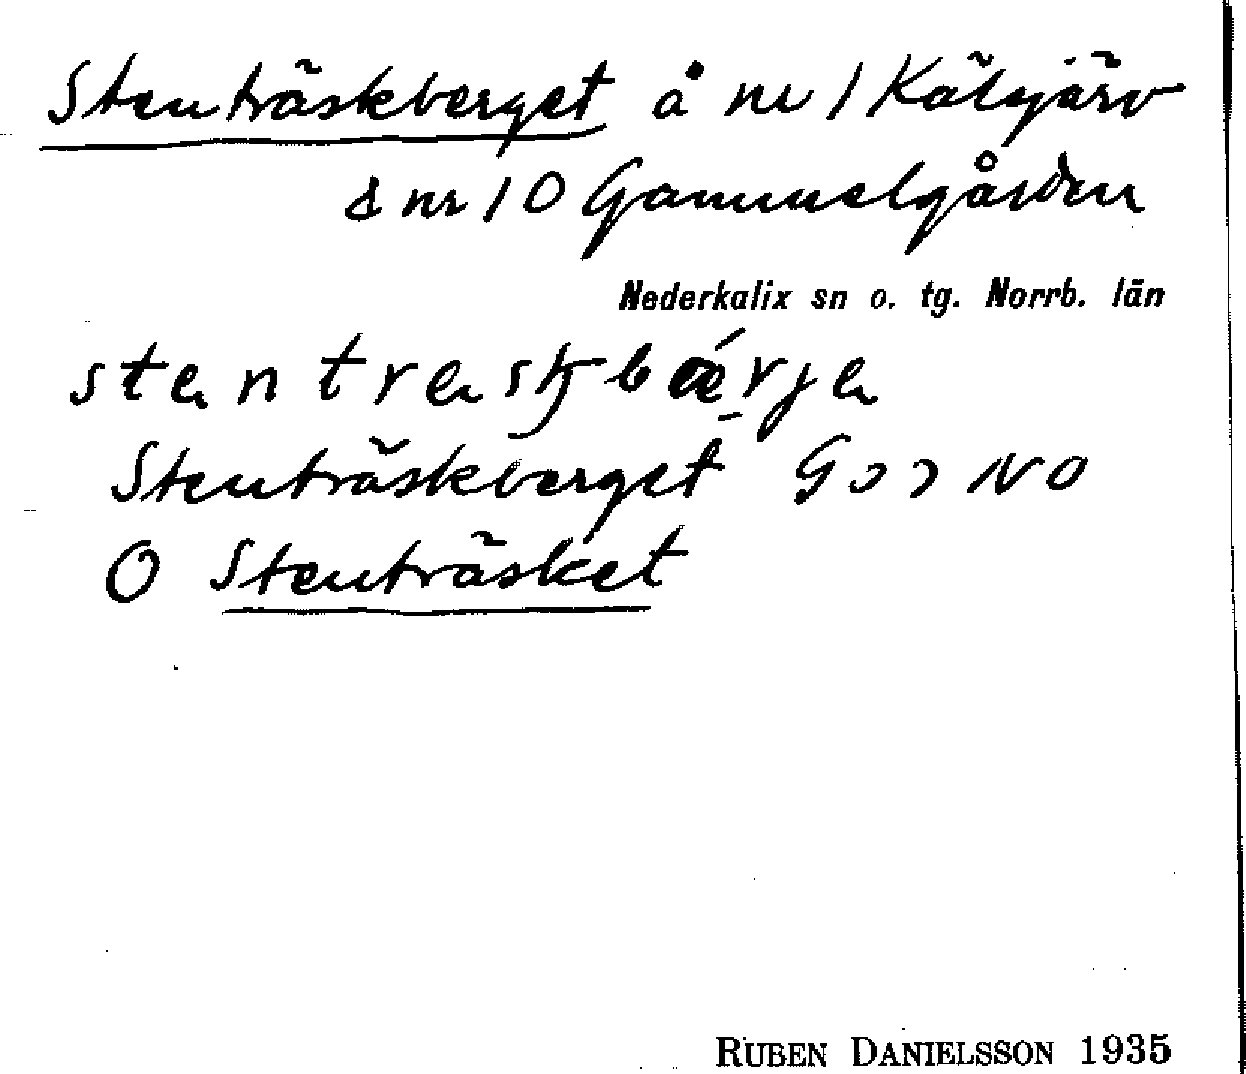 Stenträskberget å nr 1 Kälvjärv
& nr 10 Gammelgården
Nederkalix sn o. tg. Norrb. län
Stenträskberget NO
O Stenträsket
RUBEN DANIELSSON 1935